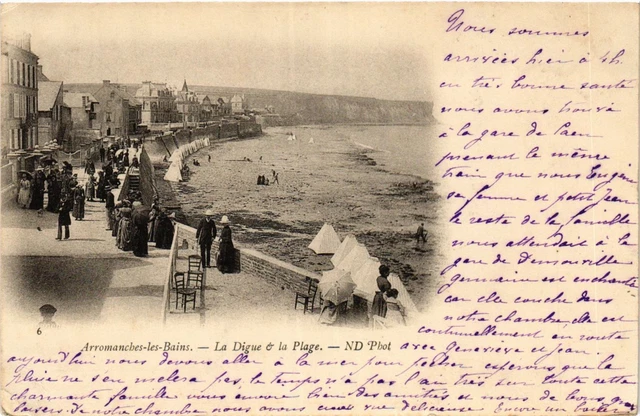 Nous sommes
arrivées hier à 4h
en très bonne santé
nous avons trouvé
à la gare de Caen
prenant le même
train que nous Eugène
sa femme et petit Jean
le reste de la famille
nous attendait à la
gare de
germaine est enchantée
car elle couche dans
notre chambre, elle est
continuellement en route
avec Geneviève et Jean.
6
Arromanches-les-Bains. — La Digue & la Plage. — ND Phot
aujourd'hui nous devons aller à la mer pour pêcher espérons que la
pluie ne s'en mêlera pas, le temps n'a pas l'air très sur toute cette
charmante famille vous envoie bien des amitiés et nous de bons gros
baisers. de notre chambre nous avons une vue délicieuse